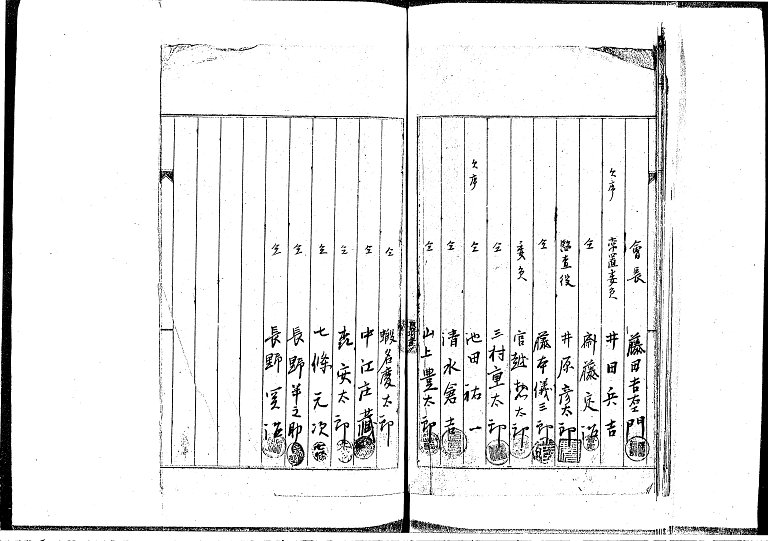 會長 藤田吉左エ門
欠席 常置委員 井田兵吉
仝 斎藤定治
監査役 井原彦太郎
仝 藤本儀三郎
委員 官越愁太郎
仝 三村重太郎
欠席 仝 池田祐一
仝 清水倉吉
仝 山上豊太郎
仝 蝦名慶太郎
仝 中江庄藏
仝 安太郎
仝 七條元次
仝 長野半之助
仝 長野 治